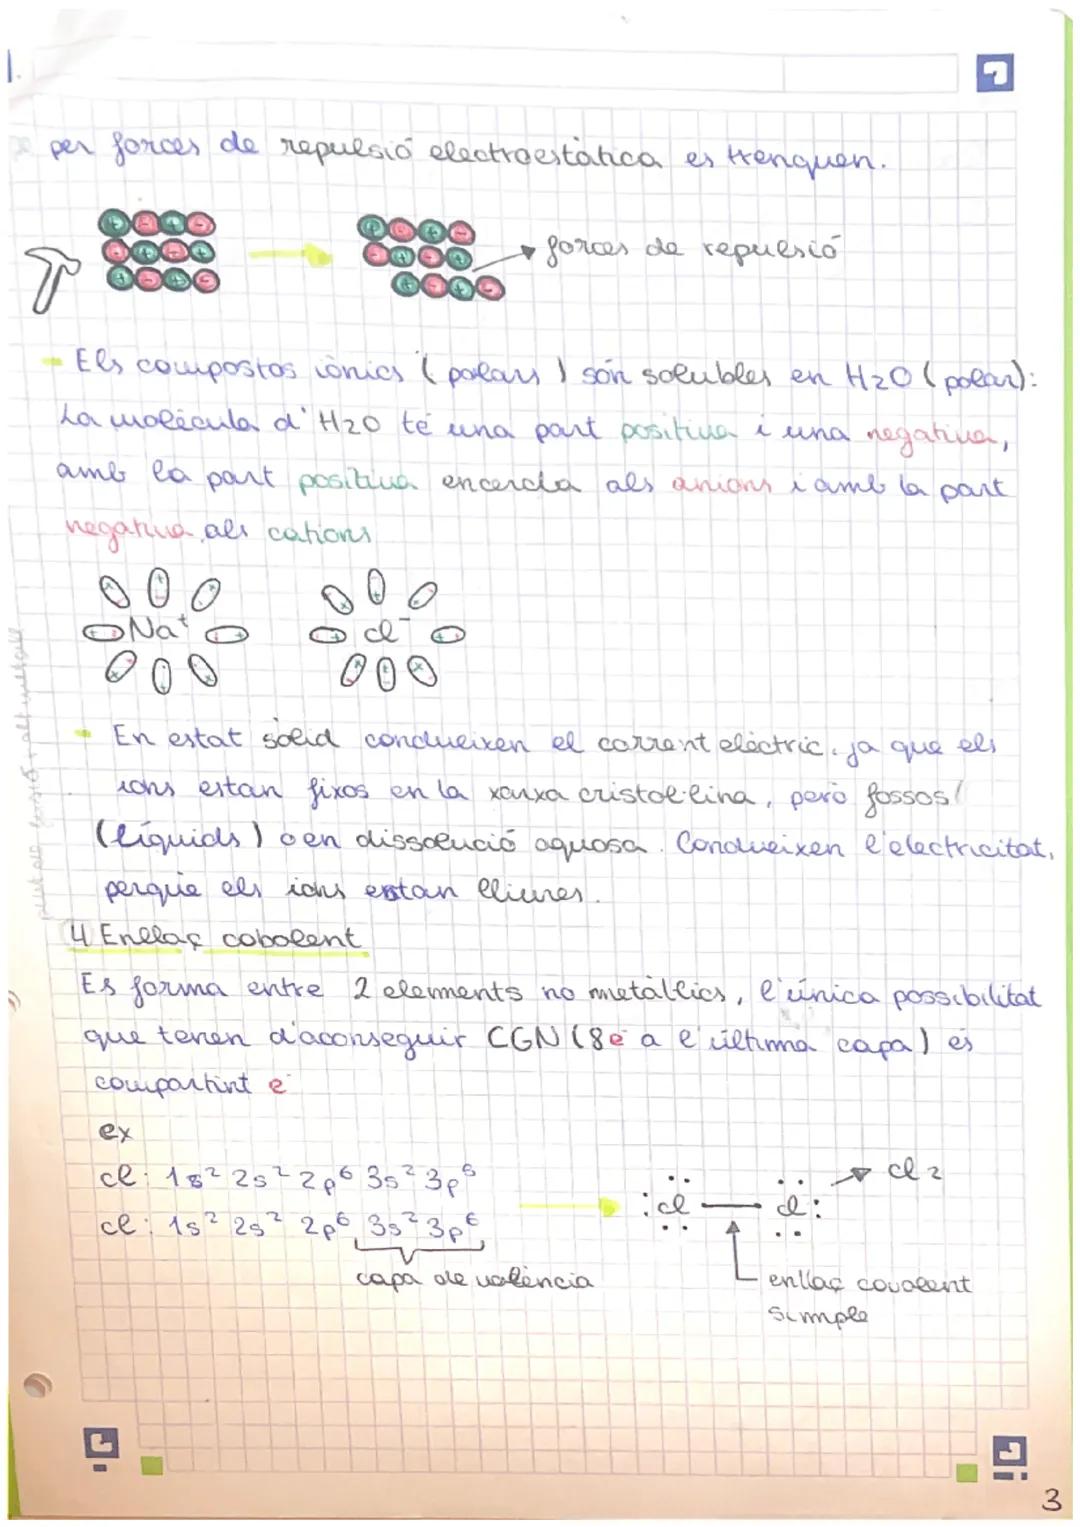 per forces de repulsió electroestàtica es trenquen.
forces de repulsió
- Els compostos iònics (polars) són solubles en H2O (polar):
La molècula d'H2O té una part positiva i una negativa,
amb la part positiva encercla als anions i amb la part
negativa als cations
Na+ cl-
- En estat sòlid condueixen el corrent elèctric, ja que els
ions estan fixos en la xarxa cristal·lina, però fossos/
(líquids) o en dissolució aquosa. Condueixen l'electricitat,
perquè els ions estan lliures.
4 Enllaç cobalent
Es forma entre 2 elements no metàl·lics, l'única possibilitat
que tenen d'aconseguir CGN (8e- a l'última capa) és
compartint e-
ex
cl: 1s² 2s² 2p⁶ 3s² 3p⁵
cl: 1s² 2s² 2p⁶ 3s² 3p⁶
capa de valència
:cl — cl: cl2
enllaç covalent
simple
3